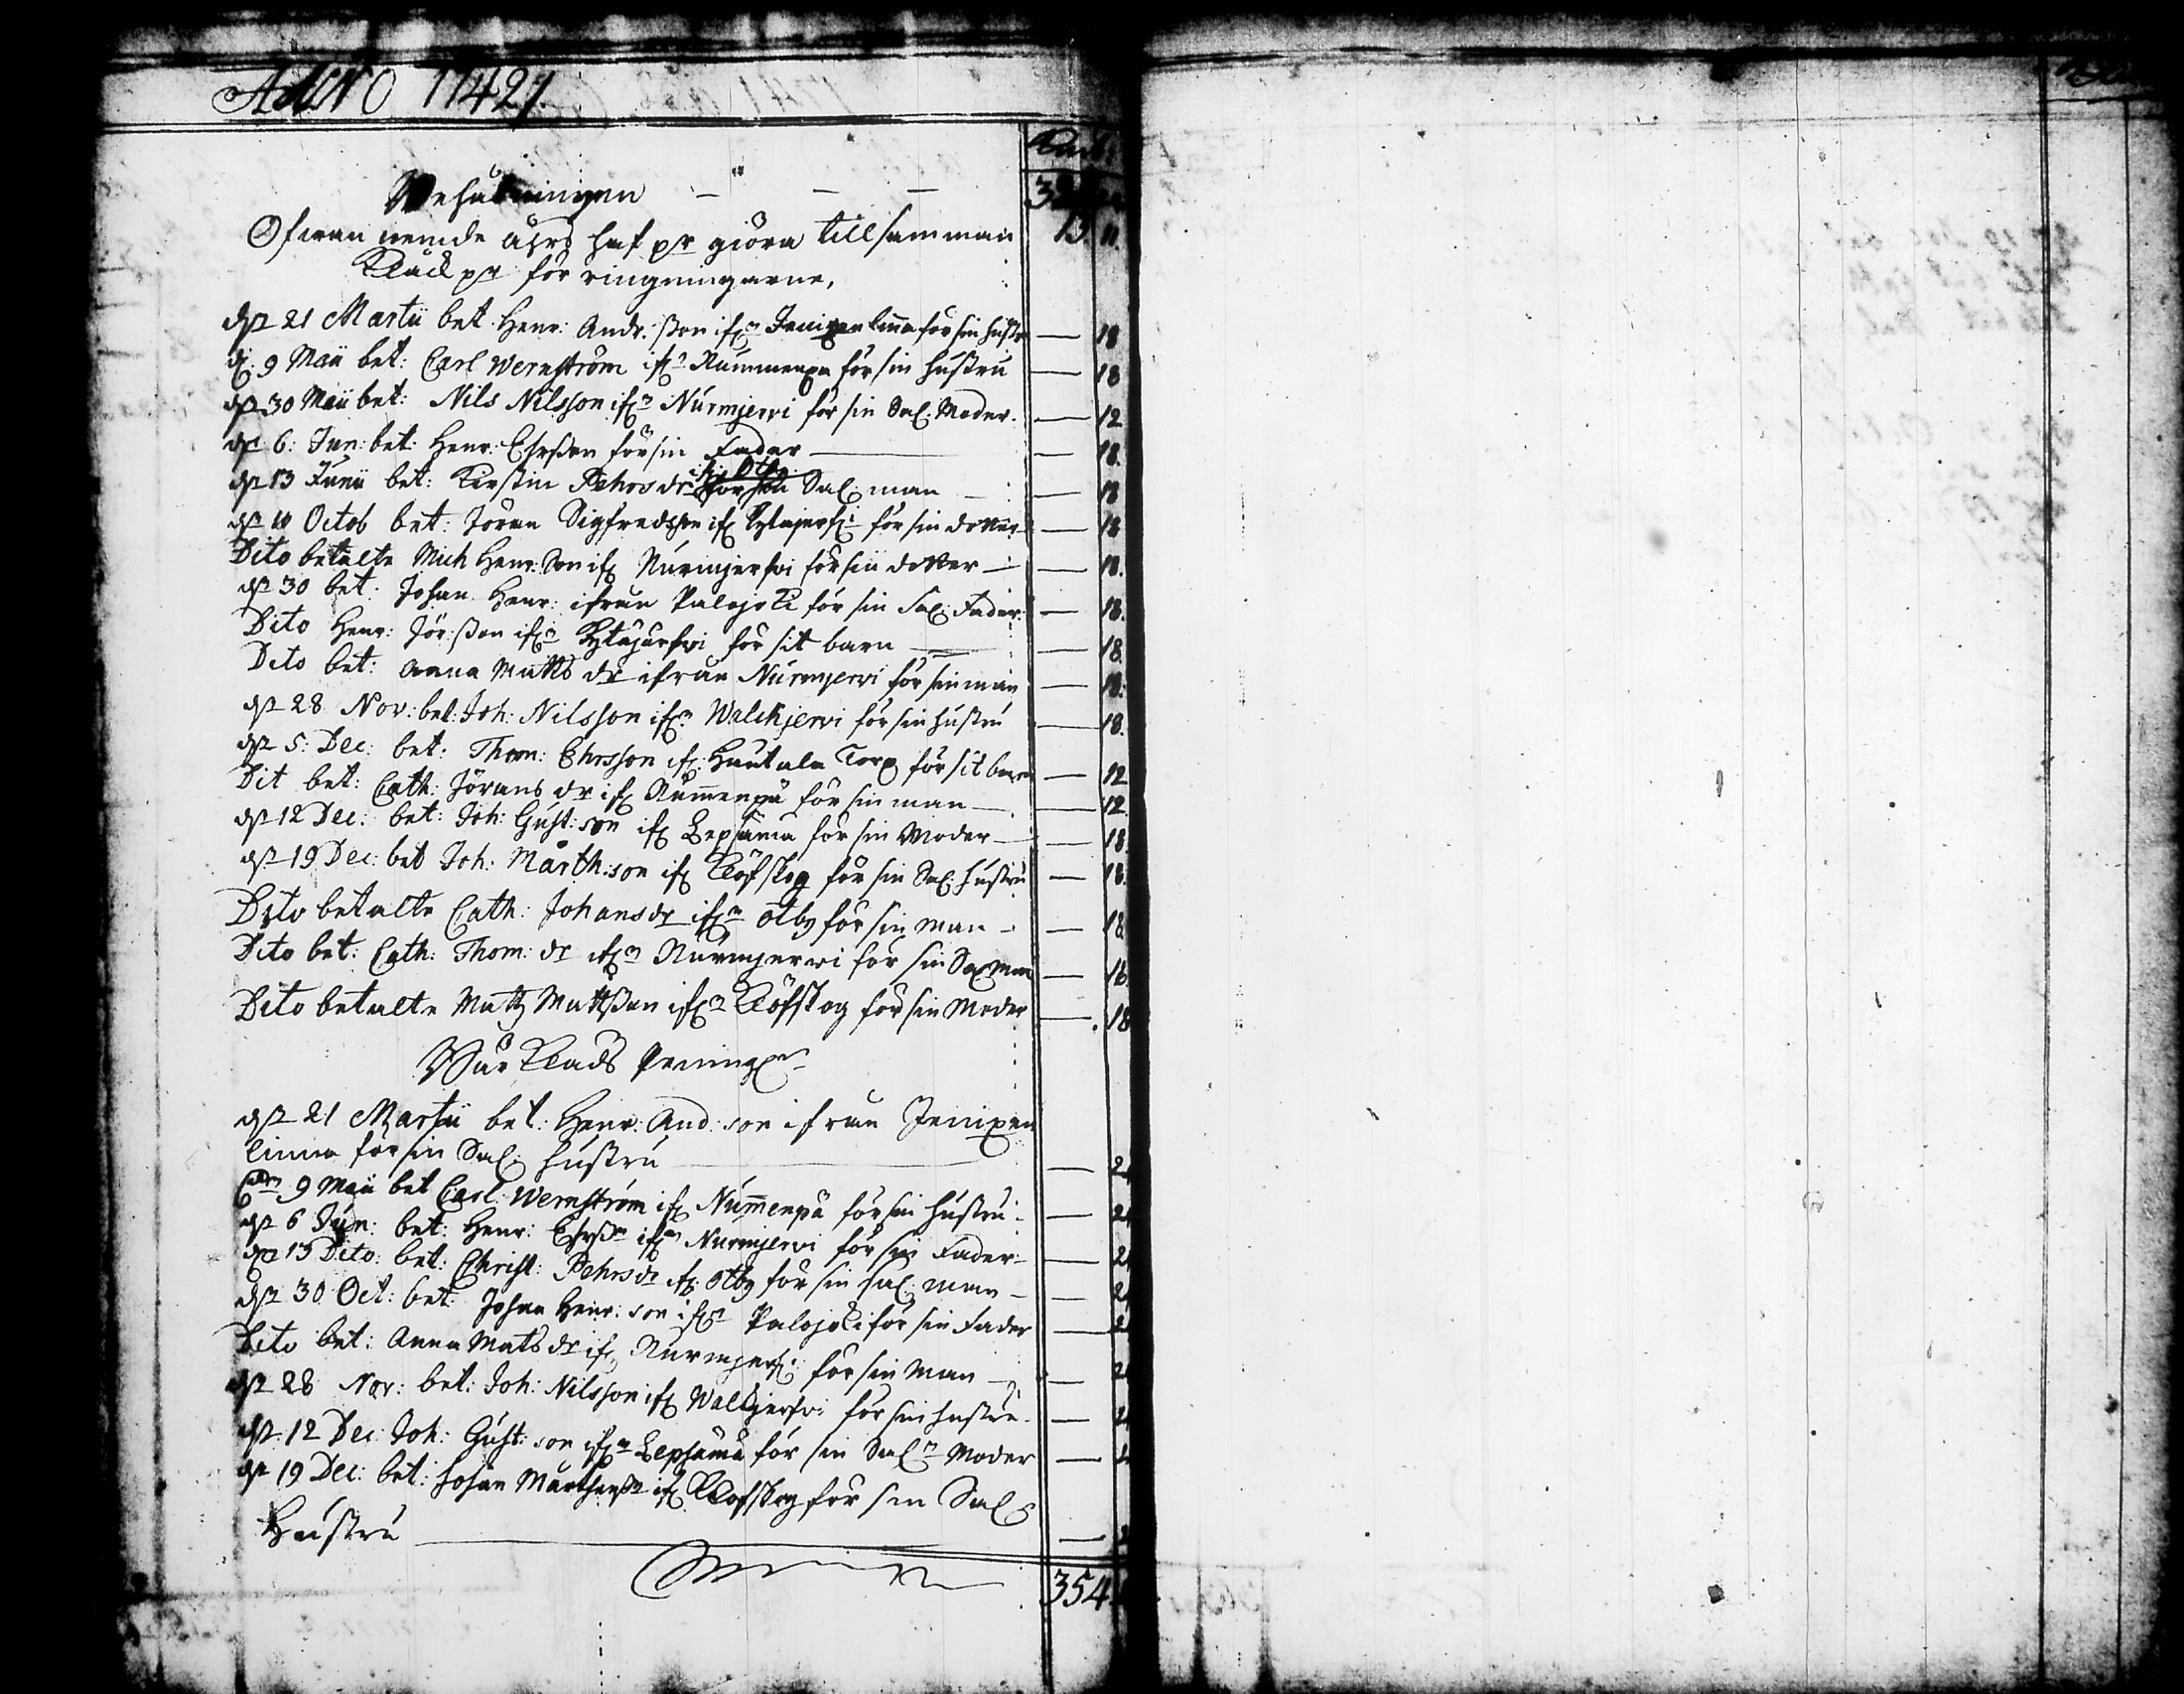 ANNO 1742
Behålningen — — —
Ofwan nemde åhrs haf pr giöra tillsamman 13 11
Klåck pr för ringningarne,
dn 21 Martii bet. Henr: Andr:ßon ifrn Jenixen linna för sin hustr — 18
d: 9 Maii bet: Carl Wernström ifrn Nummenpä för sin hustru — 18
dn 30 Maii bet: Nils Nilsson ifrn Nurmjervi för sin Sal. Moder. — 12
dn 6: Jun: bet: Henr: Ehrßon för sin Fader — 18.
ifr: Otby
dn 13 Junii bet: Kirstin Pehrs dr för sin Sal: man — 18
dn 10 Octob bet: Jöran Sigfredsson ifr Hytäjerfvi för sin dotter — 18
Dito betalte Mich Henr: Son ifr Nurmjerfvi för sin dotter — 18.
dn 30 bet: Johan Henr: ifrån Palojoki för sin Sal: Fader: — 18.
Dito Henr: Jör:ßon ifrn Hytäjerfvi för sit barn — 18.
Dito bet: Anna Matts dr ifrån Nurmjervi för sin man — 18.
dn 28 Nov: bet: Joh: Nilsson ifrn Walckjervi för sin hustru — 18.
dn 5: Dec: bet: Thom: Ehrsson ifr: Hautala Torp för sit barn — 12
Dit bet: Cath: Jörans dr ifr Nummenpä för sin man — 12.
dn 12 Dec: bet: Joh: Gust:son ifr Lepsäma för sin Moder — 18.
dn 19 Dec: bet Joh: Mårth:son ifr Klöfskog för sin Sal: hustru — 18.
Dito betalte Cath: Johans dr ifrn Otby för sin man — 18.
Dito bet: Cath: Thom: dr ifrn Nurmjerwi för sin Sal man — 16
Dito betalte Matz Mattßon ifrn Klöfskog för sin Moder — 18
Bår Klädes Peningr
dn 21 Martii bet: Henr: And:son ifrån Jenixen
linna för sin Sal: hustru — 2
9 Maii bet Carl: Wernström ifr Nummenpä för sin hustru — 2
dn 6 Jun: bet: Henr: Ehrßon ifrn Nurmjervi för sin Fader — 2
dn 13 Dito: bet: Christ: Pehrs dr ifr: Otby för sin sal: man — 2
dn 30 Oct: bet: Johan Henr: son ifrn Palojoki för sin Fader — 2
Dito bet: Anna Mats dr ifr, Nurmjerfvi för sin Man — 2
dn 28 Nov: bet: Joh: Nilsson ifr Walkjerfvi för sin hustru — 2
dn 12 Dec: Joh: Gust:son ifrn Lepsämä för sin Saln Moder —
dn 19 Dec: bet: Johan Mårthenßn ifr. Klöfskog för sin Sal:
Hustru —
354